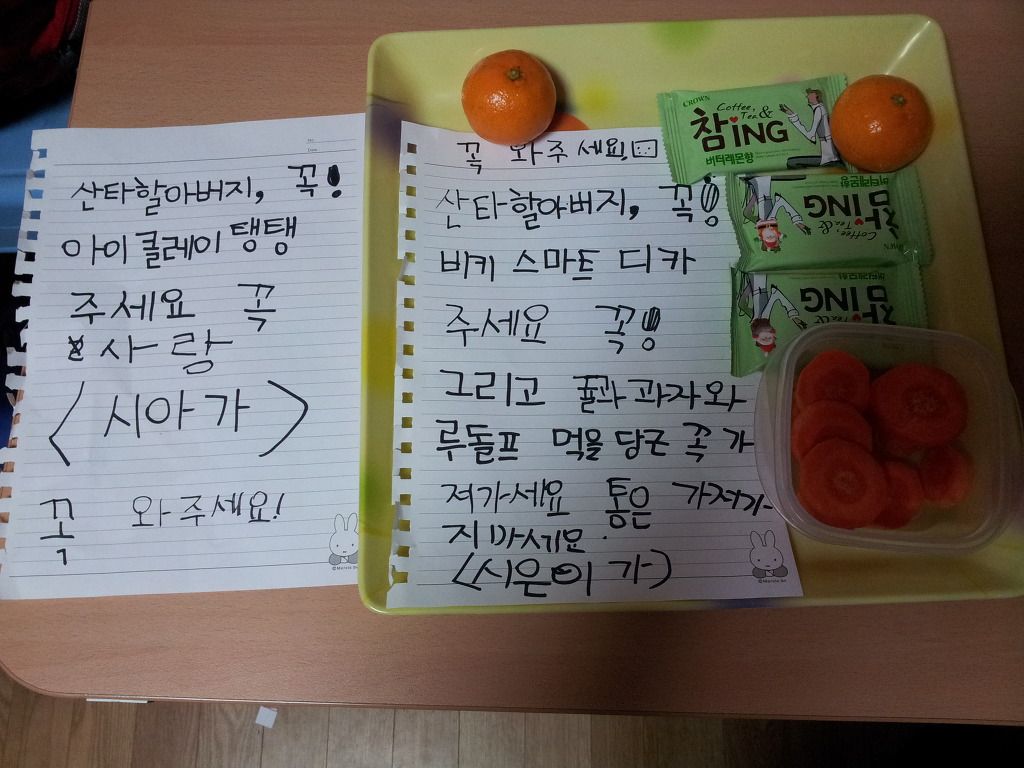 산타할아버지, 꼭!
아이클레이 탱탱
주세요 꼭
사랑
〈시아가〉
꼭 와주세요!
꼭 와주세요!
산타할아버지, 꼭!
비키 스마트 디카
주세요 꼭!
그리고 귤과 과자와
루돌프 먹을 당근 꼭 가
져가세요 통은 가져가
지마세요.
〈시은이가〉
CROWN
Coffee, Tea &
참ING
버터레몬향
Coffee, Tea &
참ING
버터레몬향
참ING
Coffee, Tea &